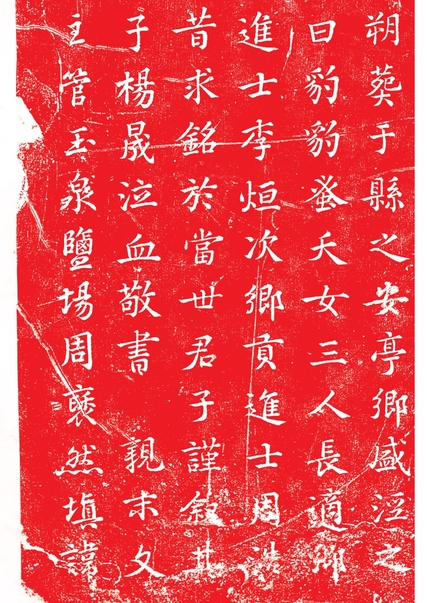 朔葬于縣之安亭鄉盛涇之
曰豹豹蚤夭女三人長適鄉
進士李烜次鄉貢進士周
昔求銘於當世君子謹叙其
子楊晟泣血敬書 親末文
主管玉泉鹽場周褎然填諱